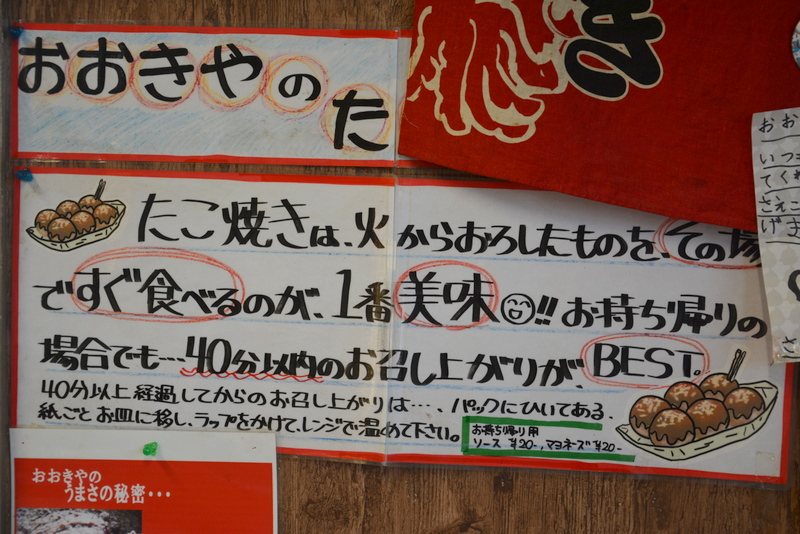 おおきやのた
き
たこ焼きは、火からおろしたものを、その場
ですぐ食べるのが、1番美味!! お持ち帰りの
場合でも…40分以内のお召し上がりが、BEST。
40分以上経過してからのお召し上がりは…、パックにひいてある、
紙ごとお皿に移し、ラップをかけて、レンジで温めて下さい。
お持ち帰り用
ソース ¥20-、マヨネーズ ¥20-
おおきやの
うまさの秘密・・・
おお
いつ
てくれ
さえこ
げま
さ